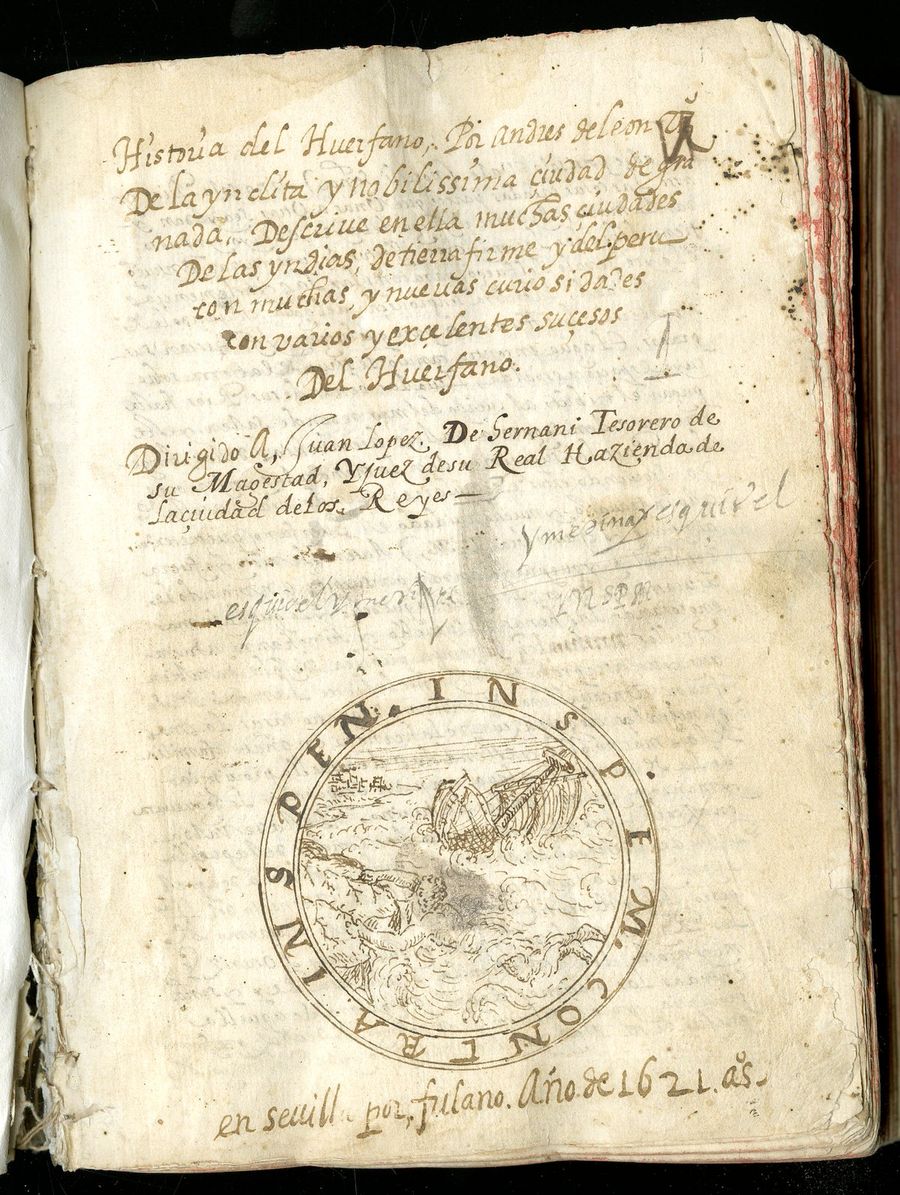 Historia del Huerfano, Por andres deleon
De la ynclita y nobilissima çiudad de gra
nada, Descrive en ella muchas çiudades
De las yndias, de tierra firme y del peru
con muchas, y nuevas curiosidades
con varios y excelentes suçesos
Del Huerfano.
Dirigido A, Juan Lopez. De Hernani Tesorero de
su Magestad, Y Juez de su Real Hazienda de
la çiudad de los Reyes
y medina y esquivel
esquivel
IN SPEM. CONTRA IN SPEN. IN SPEN.
en sevilla por, fulano. Año. de 1621. as.